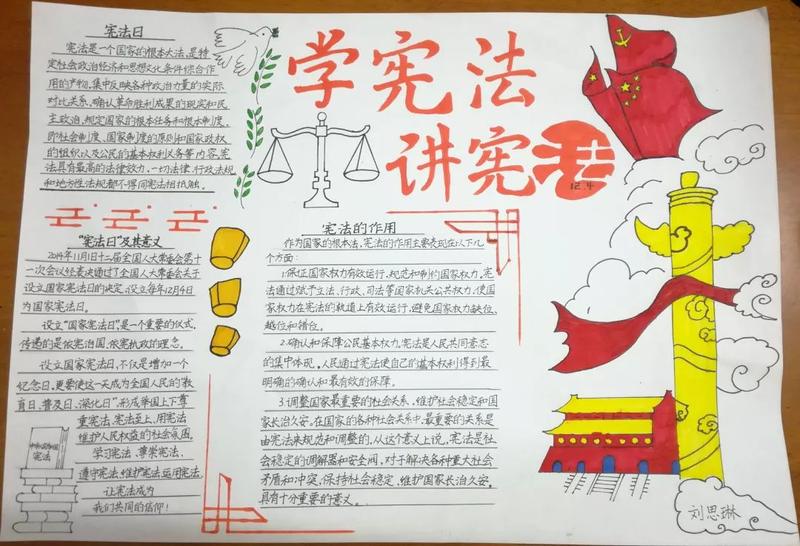 学宪法
讲宪法
12.4
宪法日
宪法是一个国家的根本大法,是特
定社会政治经济和思想文化条件综合作
用的产物,集中反映各种政治力量的实际
对比关系,确认革命胜利成果的现实和民
主政治,规定国家的根本任务和根本制度,
即社会制度、国家制度的原则和国家政权
的组织以及公民的基本权利义务等内容,宪
法具有最高的法律效力,一切法律、行政法规
和地方性法规都不得同宪法相抵触。
“宪法日”及其意义
2014年11月1日十二届全国人大常委会第十
一次会议经表决通过了全国人大常委会关于
设立国家宪法日的决定,设立每年12月4日
为国家宪法日。
设立“国家宪法日”是一个重要的仪式,
传递的是依宪治国、依宪执政的理念。
设立国家宪法日,不仅是增加一个
纪念日,更要使这一天成为全国人民的教
育日、普及日、深化日”,形成举国上下尊
重宪法、宪法至上、用宪法
维护人民权益的社会氛围,
学习宪法、尊崇宪法、
遵守宪法、维护宪法、运用宪法,
让宪法成为
我们共同的信仰!
宪法
宪法的作用
作为国家的根本法,宪法的作用主要表现在以下几
个方面:
1.保证国家权力有效运行,规范和制约国家权力,宪
法通过赋予立法、行政、司法等国家机关公共权力,使国
家权力在宪法的轨道上有效运行,避免国家权力缺位、
越位和错位。
2.确认和保障公民基本权力,宪法是人民共同意志
的集中体现,人民通过宪法使自己的基本权利得到最
明确的确认和最有效的保障。
3.调整国家最重要的社会关系,维护社会稳定和国
家长治久安,在国家的各种社会关系中,最重要的关系是
由宪法来规范和调整的,从这个意义上说,宪法是社
会稳定的调解器和安全阀,对于解决各种重大社会
矛盾和冲突,保持社会稳定、维护国家长治久安,
具有十分重要的意义。
刘思琳